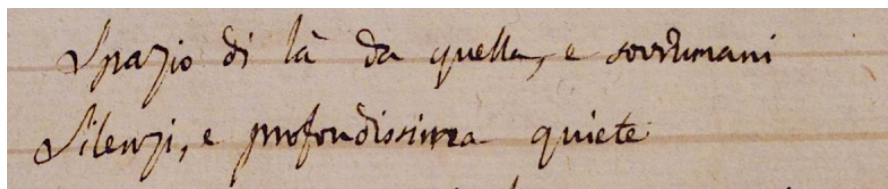 Spazio di là da quella, e sovrumani
Silenzi, e profondissima quiete